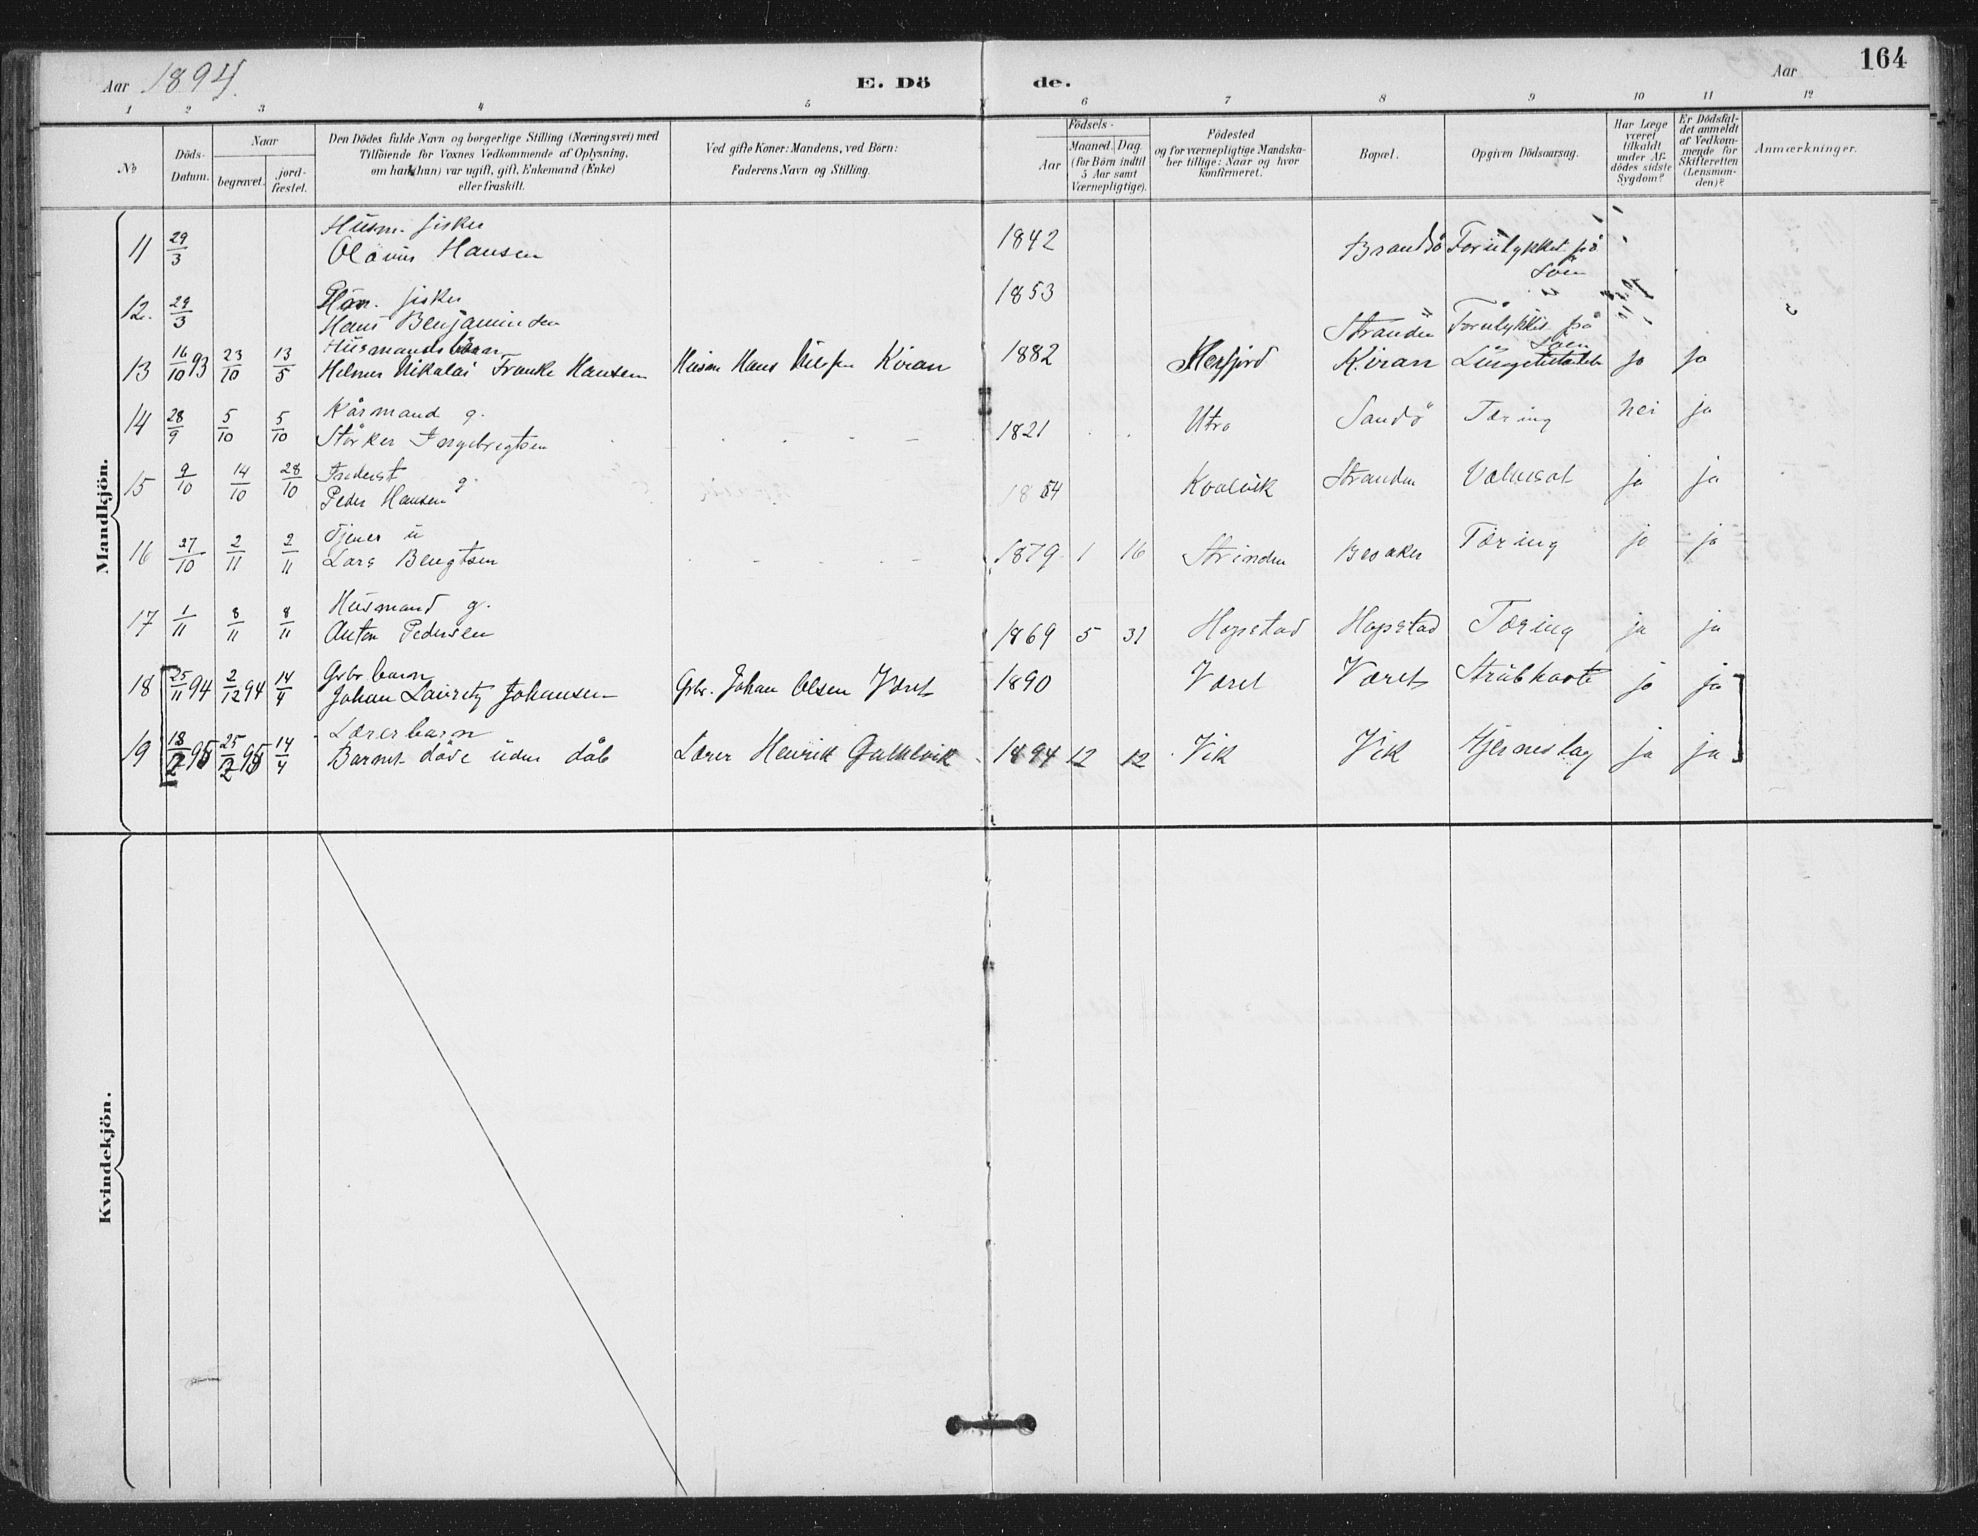 164
Aar 1894.
E. Döde.
Aar
1 2 3 4 5 6 7 8 9 10 11 12
No
Döds-Datum.
Naar
begravet.
jord-fæstet.
Den Dödes fulde Navn og borgerlige Stilling (Næringsvei) med
Tilföiende for Voxnes Vedkommende af Oplysning,
om han (hun) var ugift, gift, Enkemand (Enke)
eller fraskilt.
Ved gifte Koner: Mandens, ved Börn:
Faderens Navn og Stilling.
Födsels-
Aar
Maaned. Dag.
(for Börn indtil
5 Aar samt
Værnepligtige).
Födested
og for værnepligtige Mandska-
ber tillige: Naar og hvor
konfirmeret.
Bopæl.
Opgiven Dödsaarsag.
Har Læge
været
tilkaldt
under Af-
dödes sidste
Sygdom?
Er Dödsfal-
det anmeldt
af Vedkom-
mende for
Skifteretten
(Lensman-
den)?
Anmærkninger.
Mandkjön.
Husm. fisker
11 29/3 Olavus Hansen 1842 Brandsö Forulykket på Söen
fisker
12. 29/3 Hans Benjaminsen 1853 Stranden Forulykket på Söen
Husmands barn
13 16/10 93 23/10 13/5 Helmer Nikolai Franke Hansen Husm Hans Nilsen Kiran 1882 Hesfjord Kiran ja ja
Kårmand g.
14 28/9 5/10 5/10 Störker Ingebrigtsen 1821 Utro Sandö Tæring nei ja
Inderst
15 9/10 14/10 28/10 Peder Hansen g. 1854 Kvalvik Stranden ja ja
Tjener u
16 27/10 2/11 2/11 Lars Bengtsen 1879 1 16 Strinden Besaker Tæring ja ja
Husmand g.
17 1/11 8/11 8/11 Anton Pedersen 1869 5 31 Hopstad Hopstad Tæring ja ja
Gbr barn
18 25/11 94 2/12 94 14/4 Johan Lauritz Johansen Gbr. Johan Olsen Været 1890 Været Været Strubhoste ja ja
Lærerbarn
19 95 95 14/4 Barnet döde uden dåb Lærer Henrik 1894 12 12 Vik Vik ja ja
Kvindekjön.